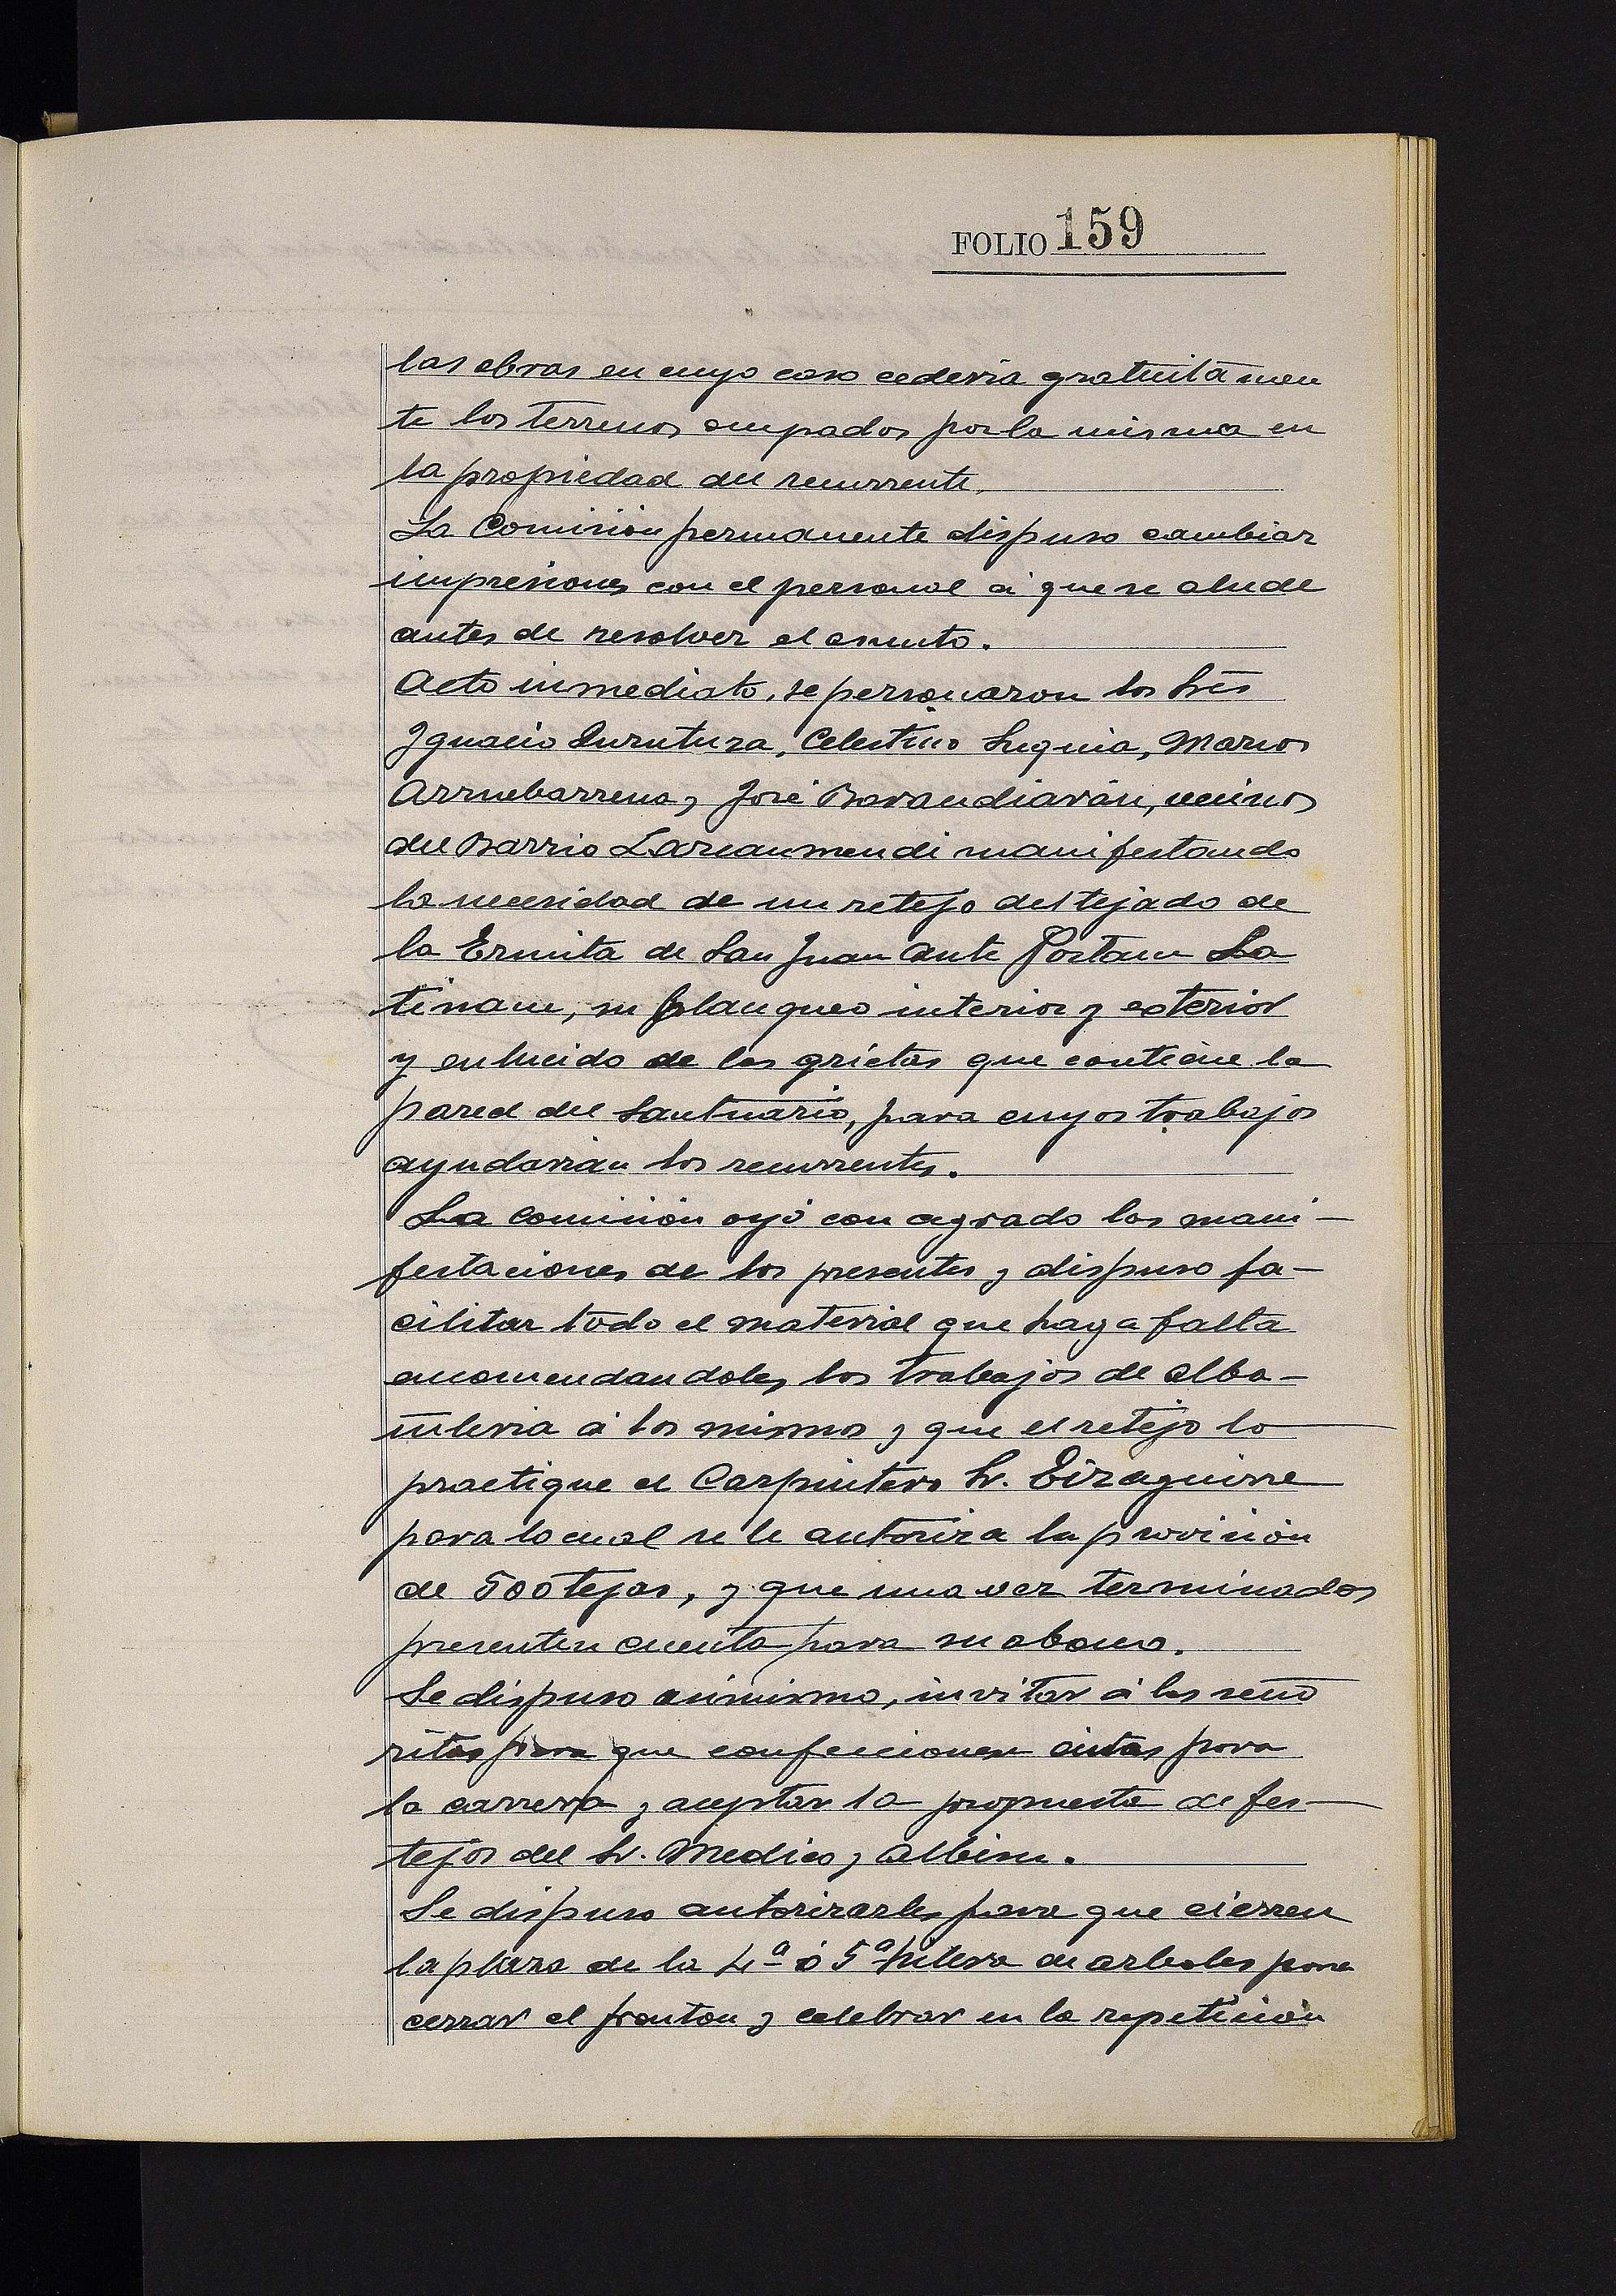 FOLIO 159
las obras en cuyo caso cederia gratuitamen
te los terrenos ocupados por la misma en
la propiedad del recurrente.
La Comisión permanente dispuso cambiar
impresiones con el personal á que se alude
antes de resolver el asunto.
Acto inmediato, se personaron los Srés
Ignacio Irurtuza, Celestino Suquia, Marcos
Arruebarrena y José Barandiarán, vecinos
del Barrio Lareaumendi manifestando
la necesidad de un retejo del tejado de
la Ermita de San Juan Ante Portam La
tinam, su blanqueo interior y exterior
y enlucido de las grietas que contiene la
pared del Santuario, para cuyos trabajos
ayudarian los recurrentes.
La comisión oyó con agrado las mani-
festaciones de los presentes y dispuso fa-
cilitar todo el material que haga falta
encomendandoles los trabajos de alba-
ñileria á los mismos y que el retejo lo
practique el Carpintero Sr. Eizaguirre
para lo cual se le autoriza la provisión
de 500 tejas, y que una vez terminados
presenten cuenta para su abono.
Se dispuso asimismo, invitar á las seño
ritas para que confeccionen cintas para
la carrera y aceptar la propuesta de fes-
tejos del Sr. Medico y Albisu.
Se dispuso autorizarles para que cierren
la plaza de la 4ª ó 5ª hilera de arboles para
cerrar el fronton y celebrar en la repetición